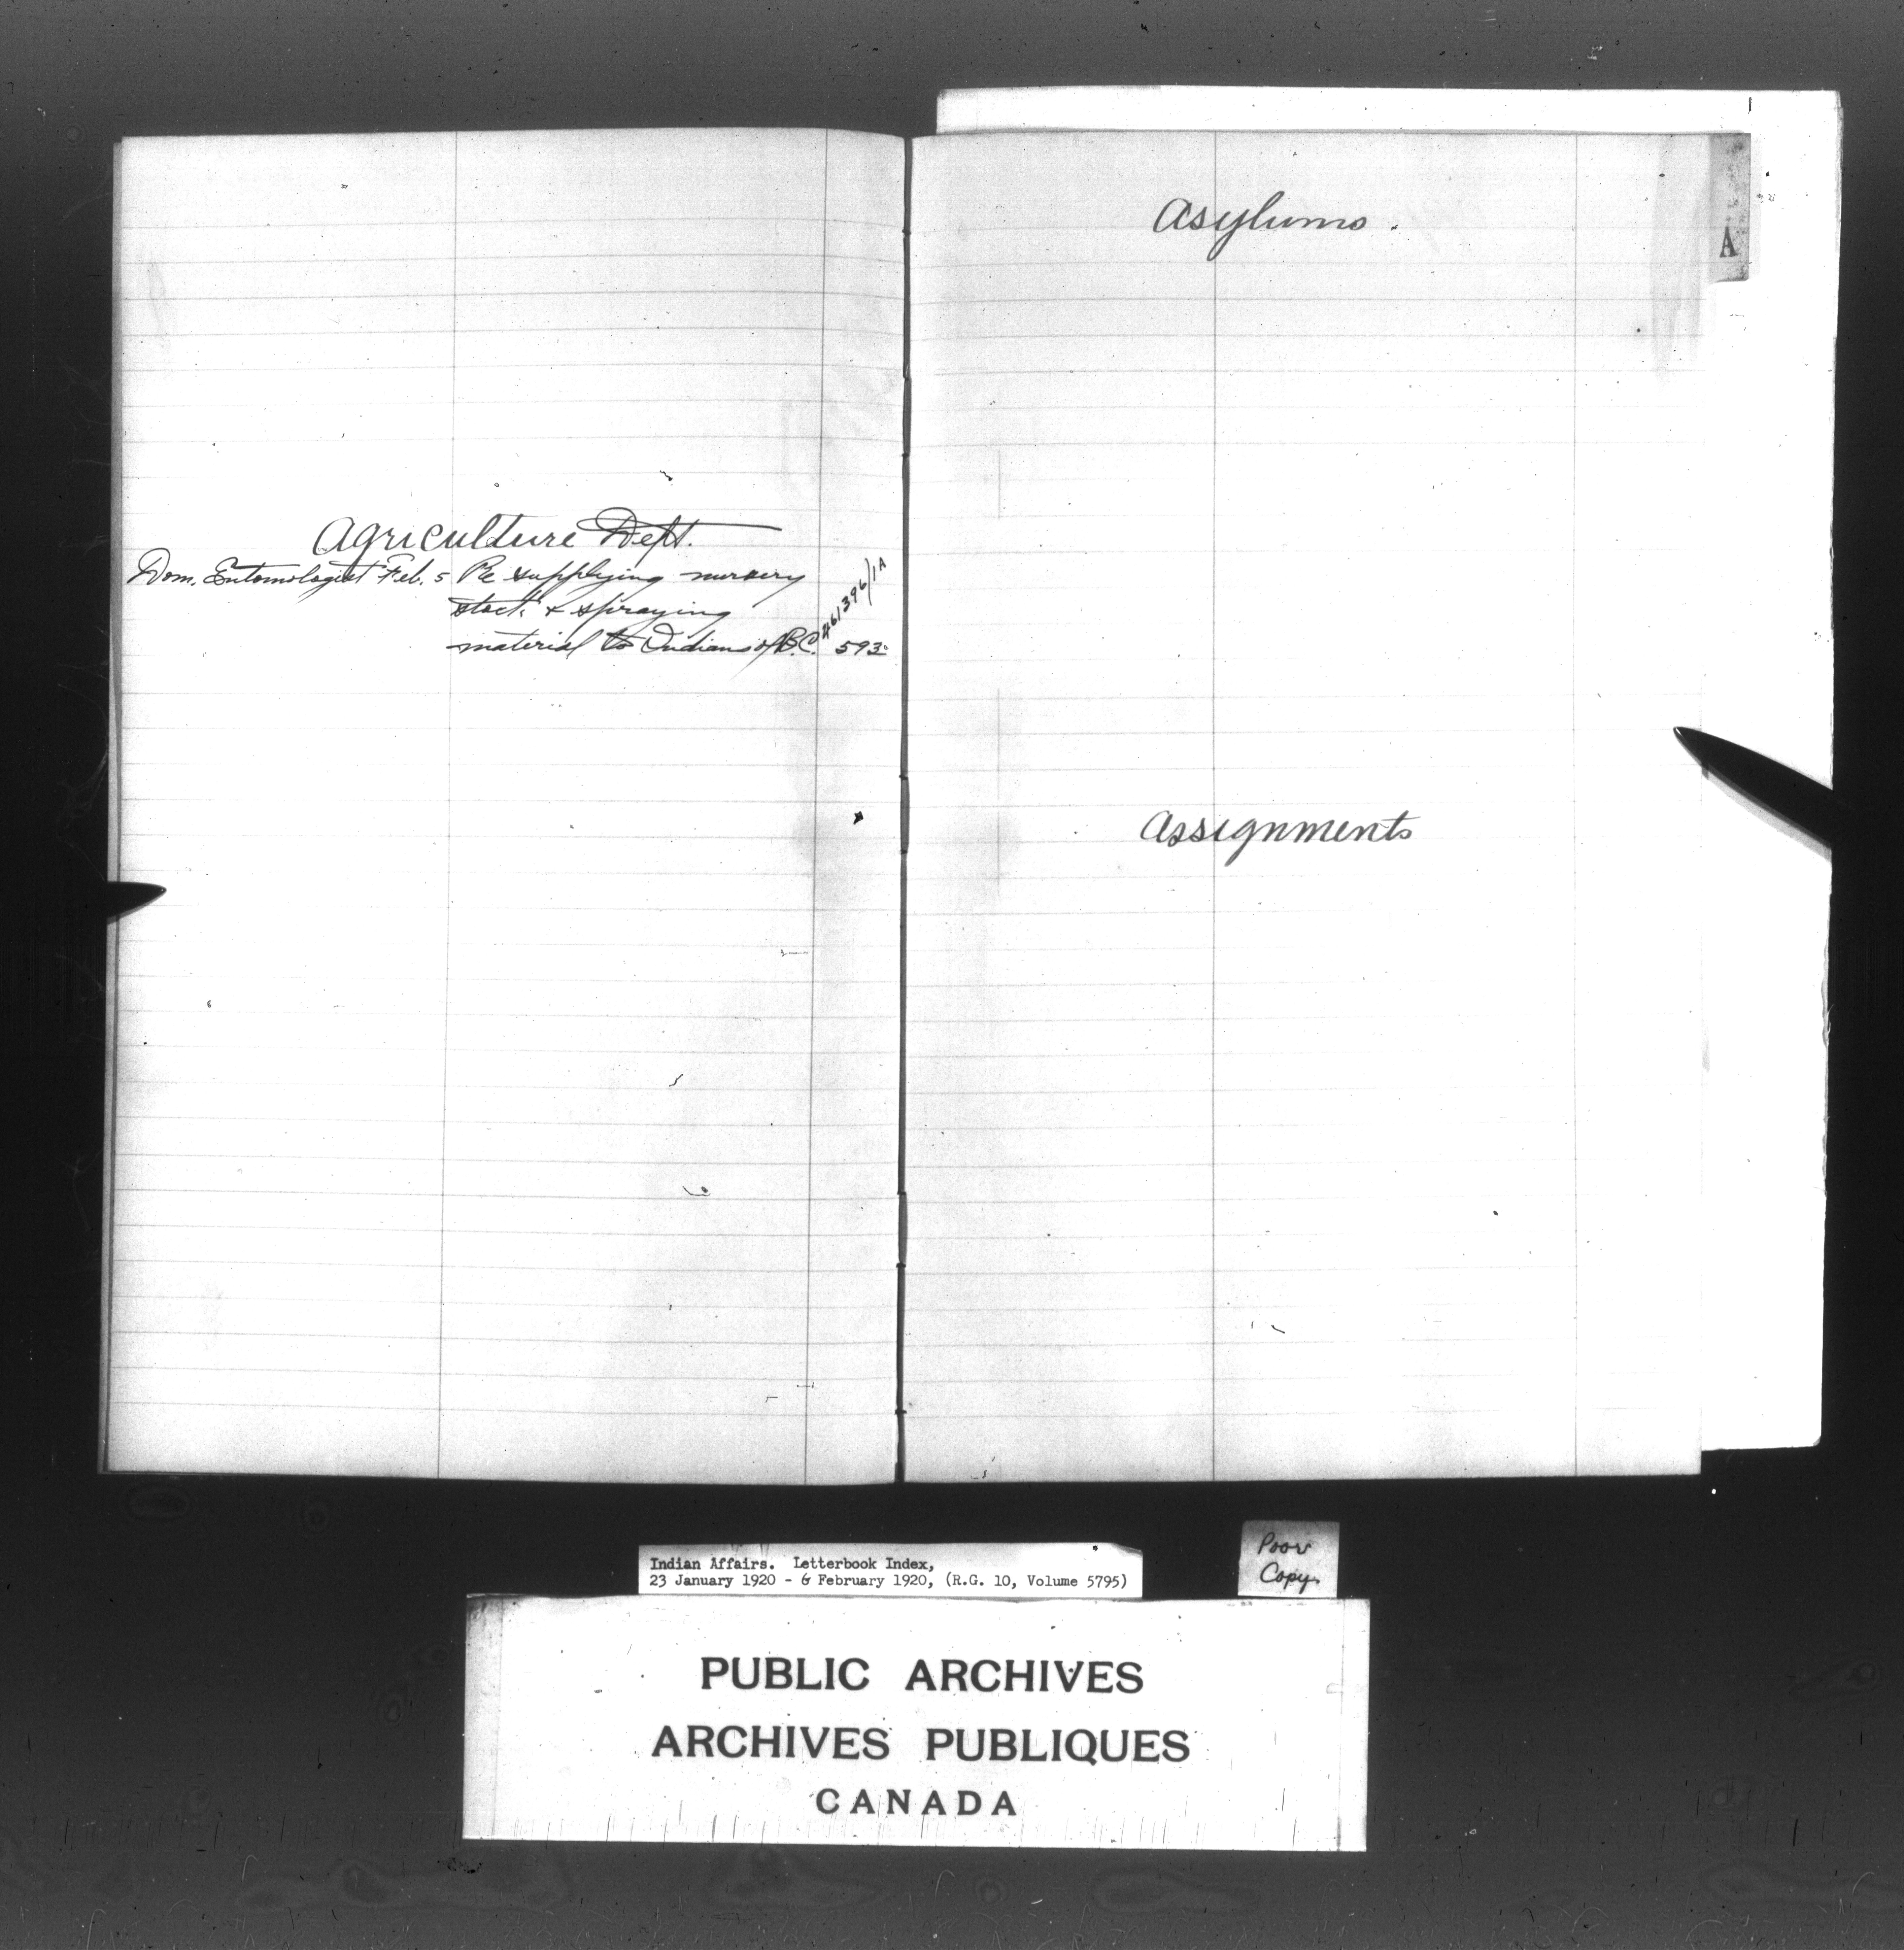 Agriculture Dept.
Dom. Entomologist Feb. 5 Re supplying nursery
stock & spraying
material to Indians of B.C. 593
461396/1A
Asylums.
A
Assignments
Indian Affairs. Letterbook Index,
23 January 1920 - 6 February 1920, (R.G. 10, Volume 5795)
Poor
Copy
PUBLIC ARCHIVES
ARCHIVES PUBLIQUES
CANADA